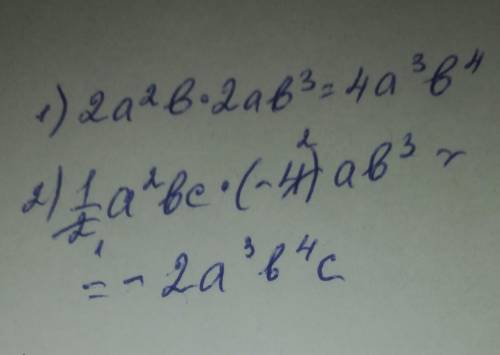 1) 2a²b·2ab³=4a³b⁴
2) 1/2 a²bc·(-4)² ab³ =
1
=-2a³b⁴c